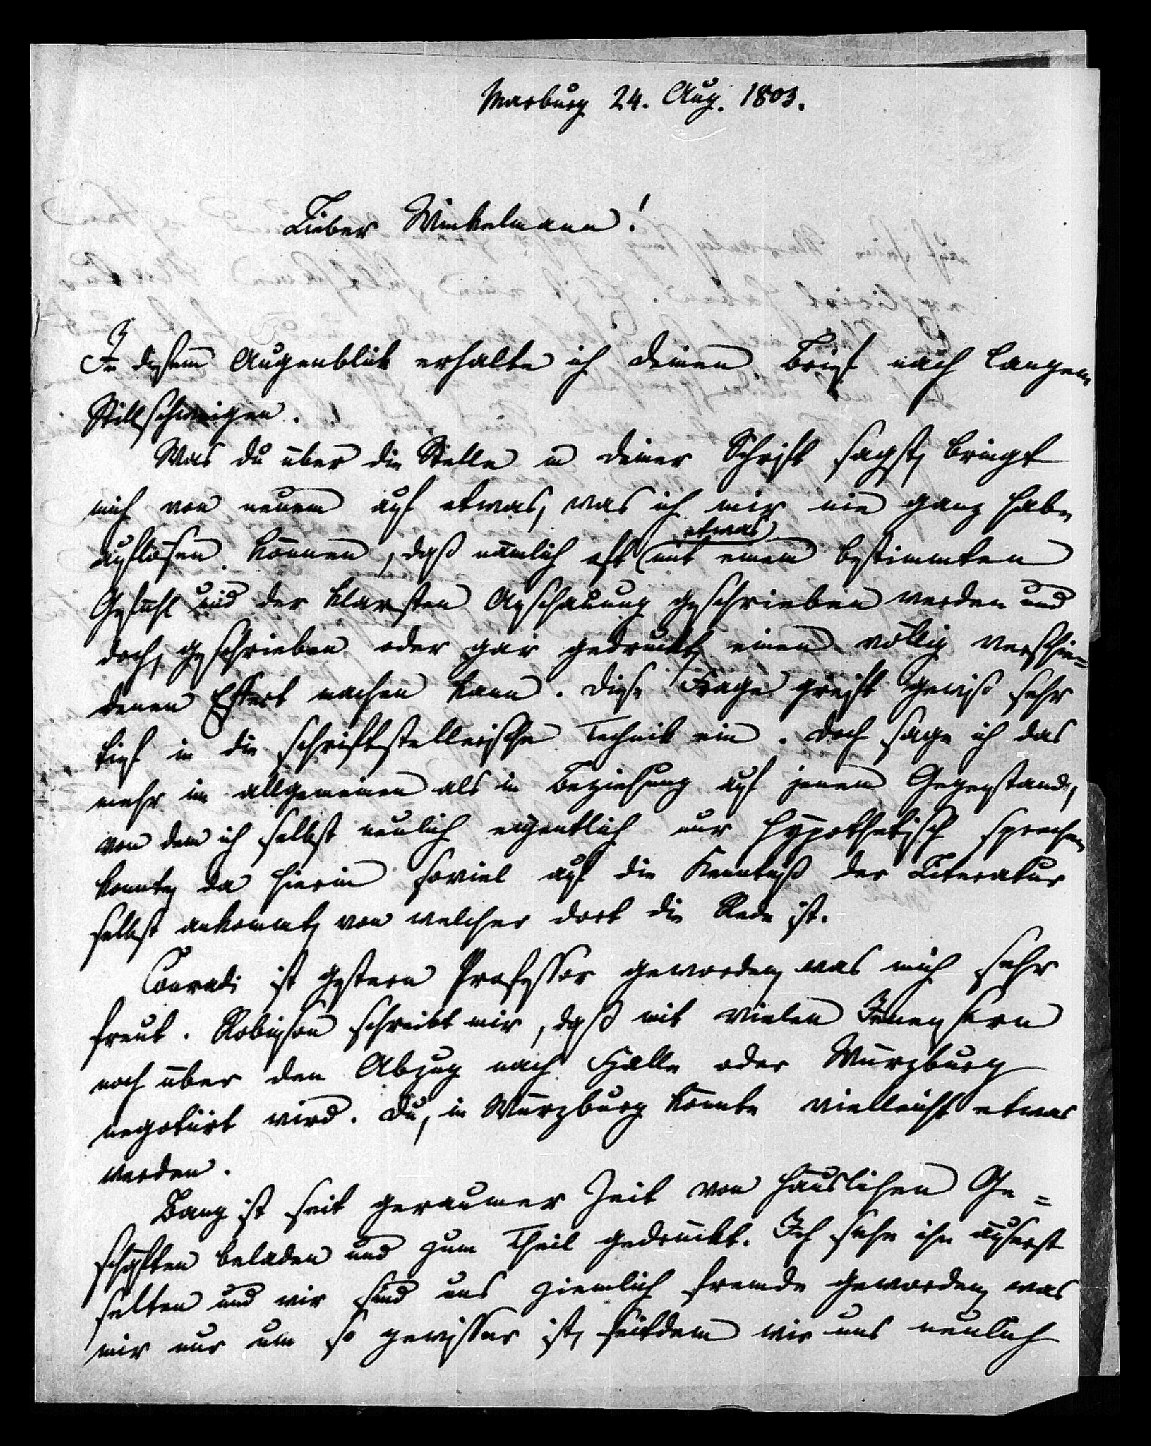 Marburg 24. Aug. 1803.
Lieber Winkelmann!
In diesem Augenblik erhalte ich deinen Brief nach langem
Stillschweigen.
Was du über die Stelle in deiner Schrift sagst, bringt
mich von neuem auf etwas, was ich mir nie ganz habe
auflösen können, daß nämlich oft etwas mit einem bestimmten
Gefühl und der klarsten Anschauung geschrieben werden und
doch, geschrieben oder gar gedruckt, einen völlig verschie=
denen Effect machen kann. Diese Frage greift gewiß sehr
tief in die schriftstellerische Technik ein. Doch sage ich das
mehr im allgemeinen als in Beziehung auf jenen Gegenstand,
von dem ich selbst neulich eigentlich nur hypothetisch sprechen
konnte, da hierin soviel auf die Kenntniß der Literatur
selbst ankommt, von welcher dort die Rede ist.
Conradi ist gestern Professor geworden, was mich sehr
freut. Robinson schreibt mir, daß mit vielen Jenensern
noch über den Abzug nach Halle oder Würzburg
negotiirt wird. Du, in Würzburg könnte vielleicht etwas
werden.
Bang ist seit geraumer Zeit von häuslichen Ge=
schäften beladen und zum Theil gedrückt. Ich sehe ihn äußerst
selten und wir sind uns ziemlich fremde geworden, was
mir nur um so gewisser ist, seitdem wir uns neulich